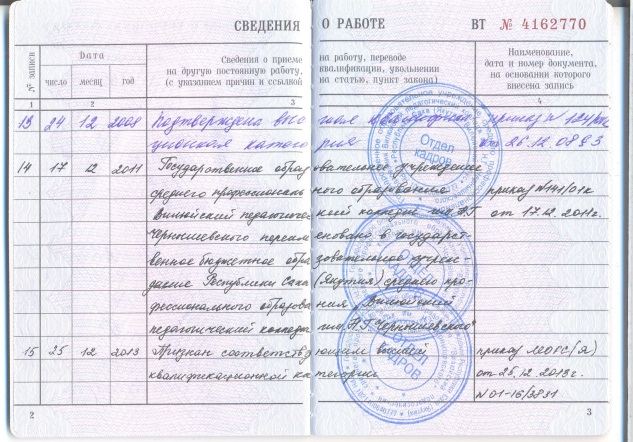 СВЕДЕНИЯ О РАБОТЕ ВТ № 4162770
№ записи
Дата
число месяц год
Сведения о приеме на работу, переводе
на другую постоянную работу, квалификации, увольнении
(с указанием причин и ссылкой на статью, пункт закона)
Наименование,
дата и номер документа,
на основании которого
внесена запись
1 2 3 4
13 24 12 2008 Подтверждена высшая квалификационная категория
14 17 12 2011 Государственное образовательное учреждение
среднего профессионального образования приказ №141/01к
Вилюйский педагогический колледж им. Н.Г. от 17.12.2011г.
Чернышевского переименовано в государст-
венное бюджетное образовательное учреж-
дение Республики Саха (Якутия) среднего про-
фессионального образования „Вилюйский
педагогический колледж им. Н.Г. Чернышевского"
15 25 12 2013 Признан соответствующим высшей приказ
квалификационной категории от 25.12.2013г.
№01-16/3831
Отдел
кадров
ОТДЕЛ
КАДРОВ
ОТДЕЛ
КАДРОВ
2
3